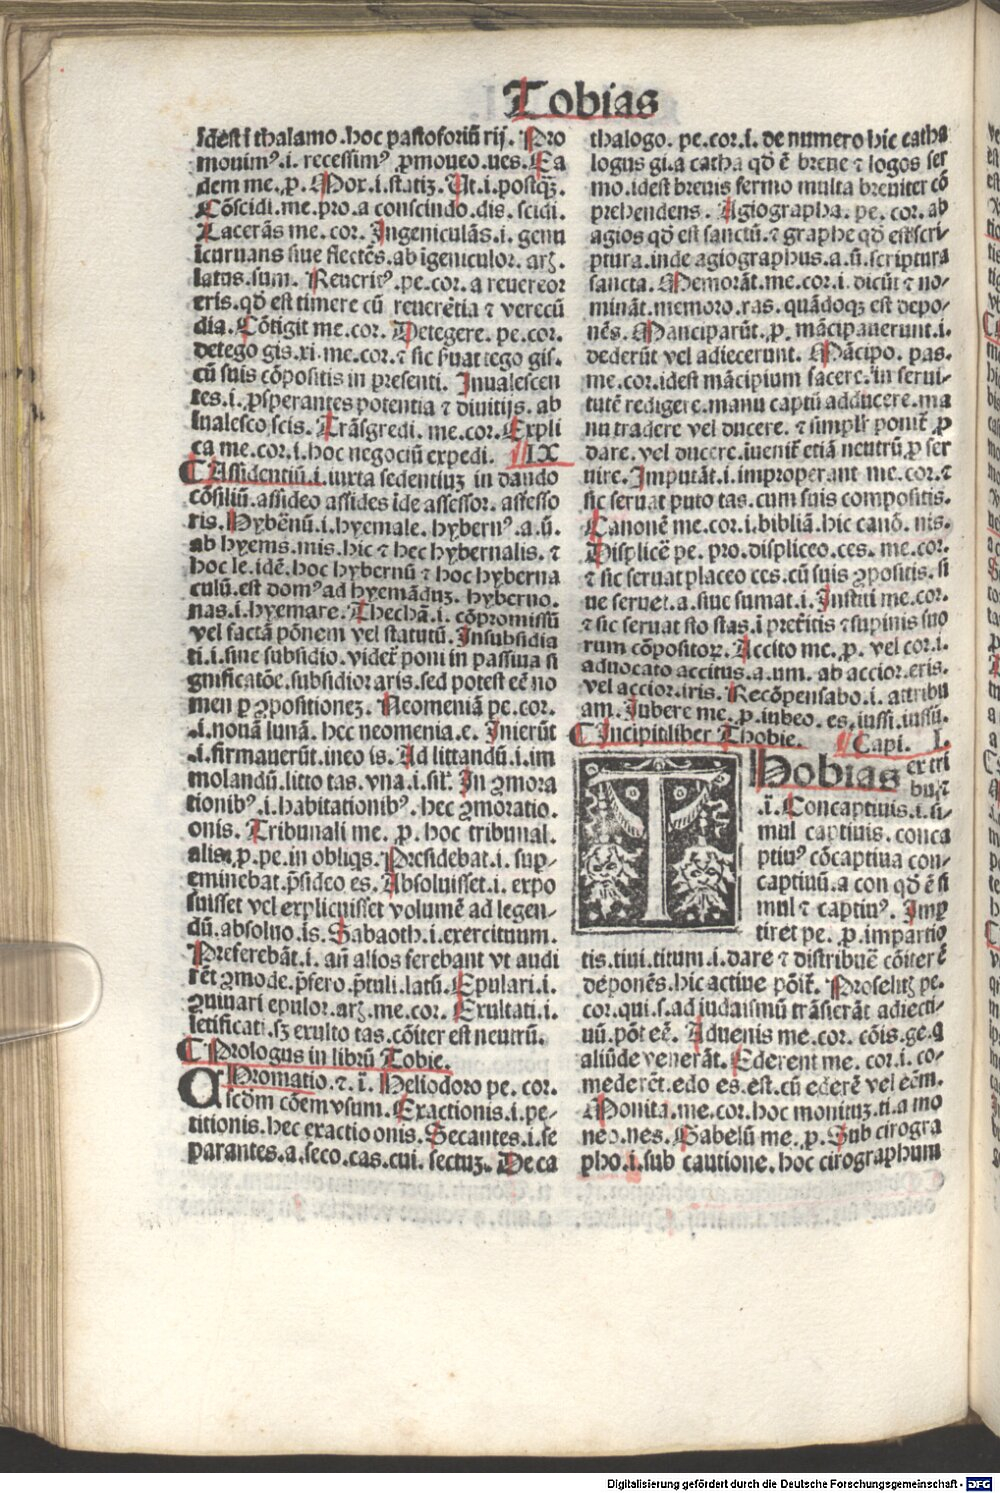 Tobias
idest ī thalamo.hoc pastoforiū rij. Pro
mouimꝰ.i. recessimꝰ ꝓmoueo.ues. Ea
dem me.ꝓ. Mox.i.statiȝ. Ut.i.postqȝ̄.
Cōscidi.me.pro.a conscindo.dis. scidi.
Lacerās me.cor. Ingeniculās.i. genu
icuruans siue flectēs.ab īgeniculor. arꝫ.
latus.sum. Reueritꝰ.pe.cor.a reuereor
eris.qd̄ est timere cū reuerētia ⁊ verecū
dia. Cōtigit me.cor. Detegere. pe.cor.
detego gis.xi.me.cor.⁊ sic ẜuat tego gis.
cū suis cōpositis in presenti. Inualescen
tes.i.ꝓsperantes potentia ⁊ diuitijs. ab
inalesco scis. Trāsgredi. me.cor. Expli
ca me.cor.i.hoc negociū expedi. IX
Assidentiū.i.iuxta sedentiuȝ in dando
cōsiliū.assideo assides īde assessor. assesso
ris. Hybēnū.i.hyemale. hybernꝰ.a.ū.
ab hyems.mis.hic ⁊ hec hybernalis. ⁊
hoc le.idē.hoc hybernū ⁊ hoc hyberna
culū.est domꝰ ad hyemāduȝ. hyberno.
nas.i.hyemare. Thechā.i. cōpromissū
vel factā pōnem vel statutū. Insubsidia
ti.i.siue subsidio.videt̄ poni in passiua si
gnificatōe.subsidior aris.sed potest eē no
men ꝑ ꝯpositioneȝ. Neomeniā pe.cor.
.i.nouā lunā. hec neomenia.e. Inierūt
.i.firmauerūt.ineo is. Ad littandū.i.im
molandū.litto tas. vna.i.sil̄. In ꝯmora
tionibꝰ.i.habitationibꝰ. hec ꝯmoratio.
onis. Tribunali me. ꝓ. hoc tribunal.
alis.ꝓ.pe.in obliqs. Presidebat.i. suꝑ-
eminebat.p̄sideo es. Absoluisset.i. expo
suisset vel explicuisset volumē ad legen-
dū.absoluo.is. Sabaoth.i.exercituum.
Preferebāt.i. añ alios ferebant vt audi
rēt ꝯmode.p̄fero.p̄tuli.latū. Epulari.i.
ꝯuiuari epulor.arꝫ.me.cor. Exultati.i.
letificati.sȝ exulto tas.cōiter est neutrū.
Prologus in librū Tobie.
CHromatio.⁊.ī. Heliodoro pe. cor.
scd̄m cōem vsum. Exactionis.i.pe-
titionis.hec exactio onis. Secantes.i.se
parantes.a.seco.cas.cui. sectuȝ. De ca
thalogo. pe.cor.i. de numero hic catha
logus gi.a catha qd̄ ē breue ⁊ logos ser
mo.idest breuis sermo multa breuiter cō
prehendens. Agiographa. pe. cor. ab
agios qd̄ est sanctū.⁊ graphe qd̄ est scri-
ptura.inde agiographus.a.ū.scriptura
sancta. Memorāt.me.cor.i. dicūt ⁊ no-
mināt.memoro.ras. quādoqȝ est depo-
nēs. Manciparūt.ꝓ. mācipauerunt.i.
dederūt vel adiecerunt. Mācipo. pas.
me.cor.idest mācipium facere.in serui-
tutē redigere.manu captū adducere.ma
nu tradere vel ducere. ⁊ simpl'r ponit̄ ꝓ
dare. vel ducere.iuenit̄ etiā neutrū ꝓ ser
uire. Imputāt.i.improperant me.cor.⁊
sic seruat puto tas.cum suis compositis.
Canonē me.cor.i.bibliā.hic canō. nis.
Displicē pe. pro.displiceo.ces. me.cor.
⁊ sic seruat placeo ces.cū suis ꝯpositis. si
ue seruet.a.siue sumat.i. Institui me.cor.
⁊ sic seruat sto stas.ī pret̄itis ⁊ supinis suo
rum cōpositoꝝ. Accito me. ꝓ. vel cor.i.
aduocato accitus.a.um. ab accior.eris.
vel accior.iris. Recōpensabo.i. attribu
am. Iubere me.ꝓ.iubeo.es.iussi.iussū.
Incipit liber Thobie. Capi. I.
THobias ex tri
bu.⁊
.ī. Concaptiuis.i.si-
mul captiuis. conca
ptiuꝰ cōcaptiua con-
captiuū.a con qd̄ ē si
mul ⁊ captiuꝰ. Imꝑ
tiret pe. ꝓ.impartio
tis.tiui.titum.i.dare ⁊ distribuē cōiter ē
deponēs.hic actiue pōit̄. Proselitꝫ pe.
cor.qui.s.ad iudaismū trāsierāt adiecti-
uū.pōt eē. Aduenis me.cor. cōis.ge.q
aliūde venerāt. Ederent me. cor.i. co-
mederēt.edo es.est.cū ederē vel eēm.
Monita.me.cor.hoc monituȝ.ti.a mo
neo.nes. Gabelū me.ꝓ. Sub cirogra
pho.i.sub cautione. hoc cirographum
Digitalisierung gefördert durch die Deutsche Forschungsgemeinschaft - DFG